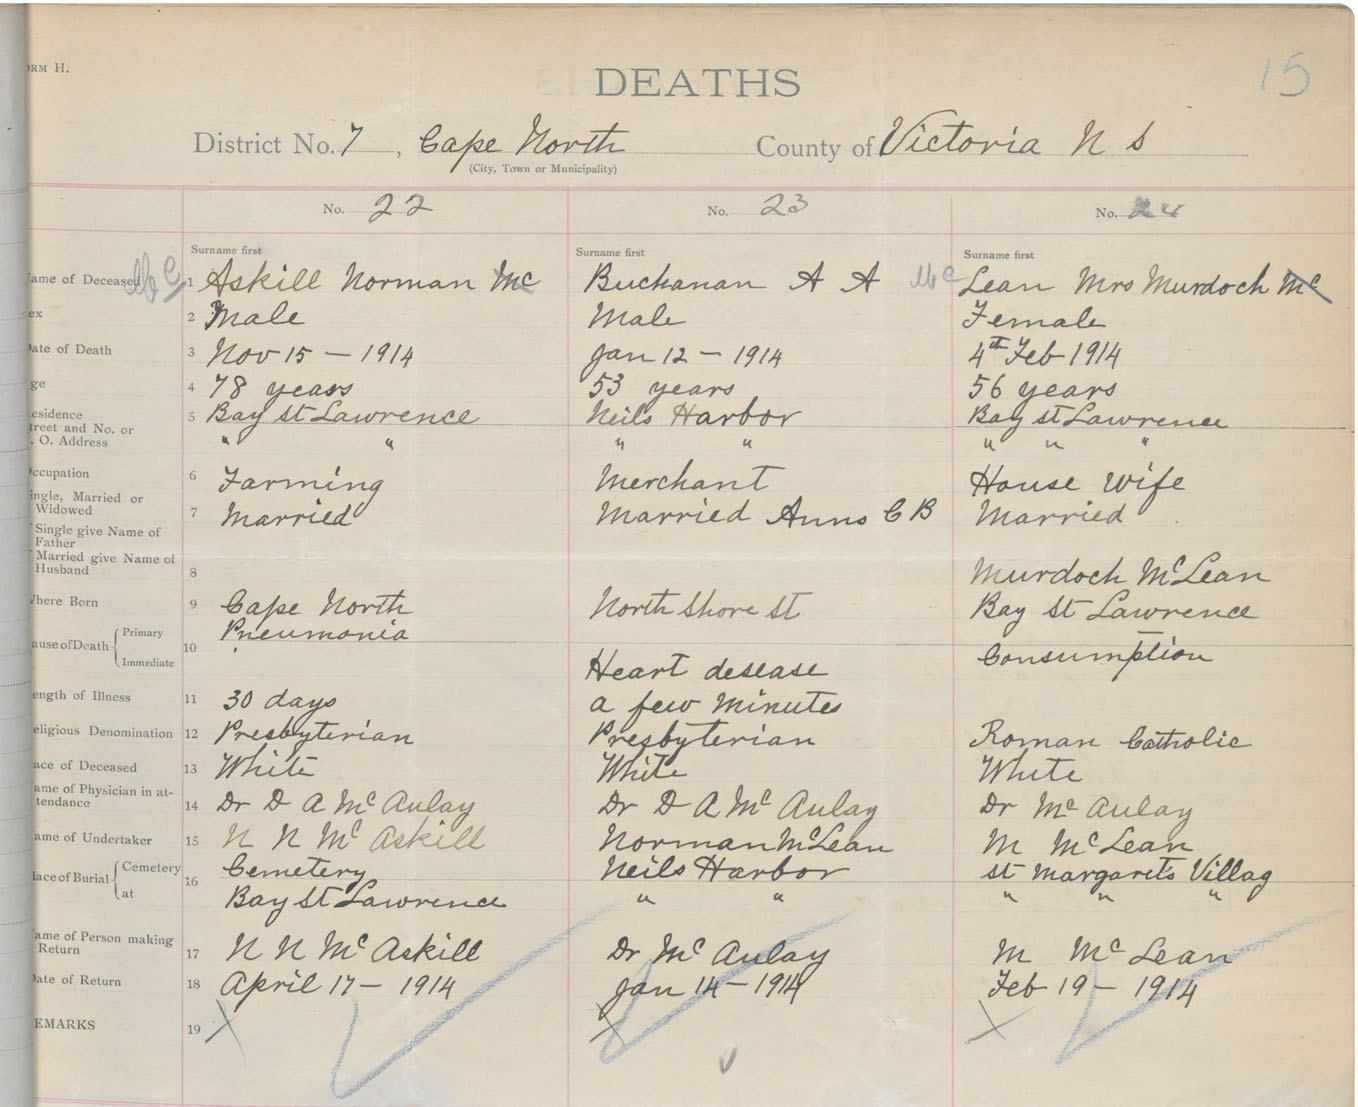 ORM H.
15
DEATHS
District No. 7, Cape North County of Victoria N S
(City, Town or Municipality)
No. 22 No. 23 No. 24
Surname first Surname first Surname first
ame of Deceased Mc 1 Askill Norman Mc Buchanan A A Mc Lean Mrs Murdoch Mc
ex 2 Male Male Female
ate of Death 3 Nov 15 - 1914 Jan 12 - 1914 4th Feb 1914
ge 4 78 years 53 years 56 years
esidence 5 Bay St Lawrence Neils Harbor Bay St Lawrence
treet and No. or
. O. Address " " " " " " "
ccupation 6 Farming Merchant House Wife
ingle, Married or
Widowed 7 Married Married Anns C B Married
Single give Name of
Father
Married give Name of
Husband 8 Murdoch McLean
here Born 9 Cape North North Shore St Bay St Lawrence
Primary Pneumonia
ause of Death 10 Consumption
Immediate Heart desease
ength of Illness 11 30 days a few Minutes
eligious Denomination 12 Presbyterian Presbyterian Roman Catholic
ace of Deceased 13 White White White
ame of Physician in at-
tendance 14 Dr D A McAulay Dr D A McAulay Dr McAulay
ame of Undertaker 15 N N McAskill Norman McLean M McLean
Cemetery Cemetery Neils Harbor St Margarets Villag
lace of Burial 16
at Bay St Lawrence " " " " "
ame of Person making
Return 17 N N McAskill Dr McAulay M McLean
ate of Return 18 April 17 - 1914 Jan 14 - 1914 Feb 19 - 1914
EMARKS 19 X X X